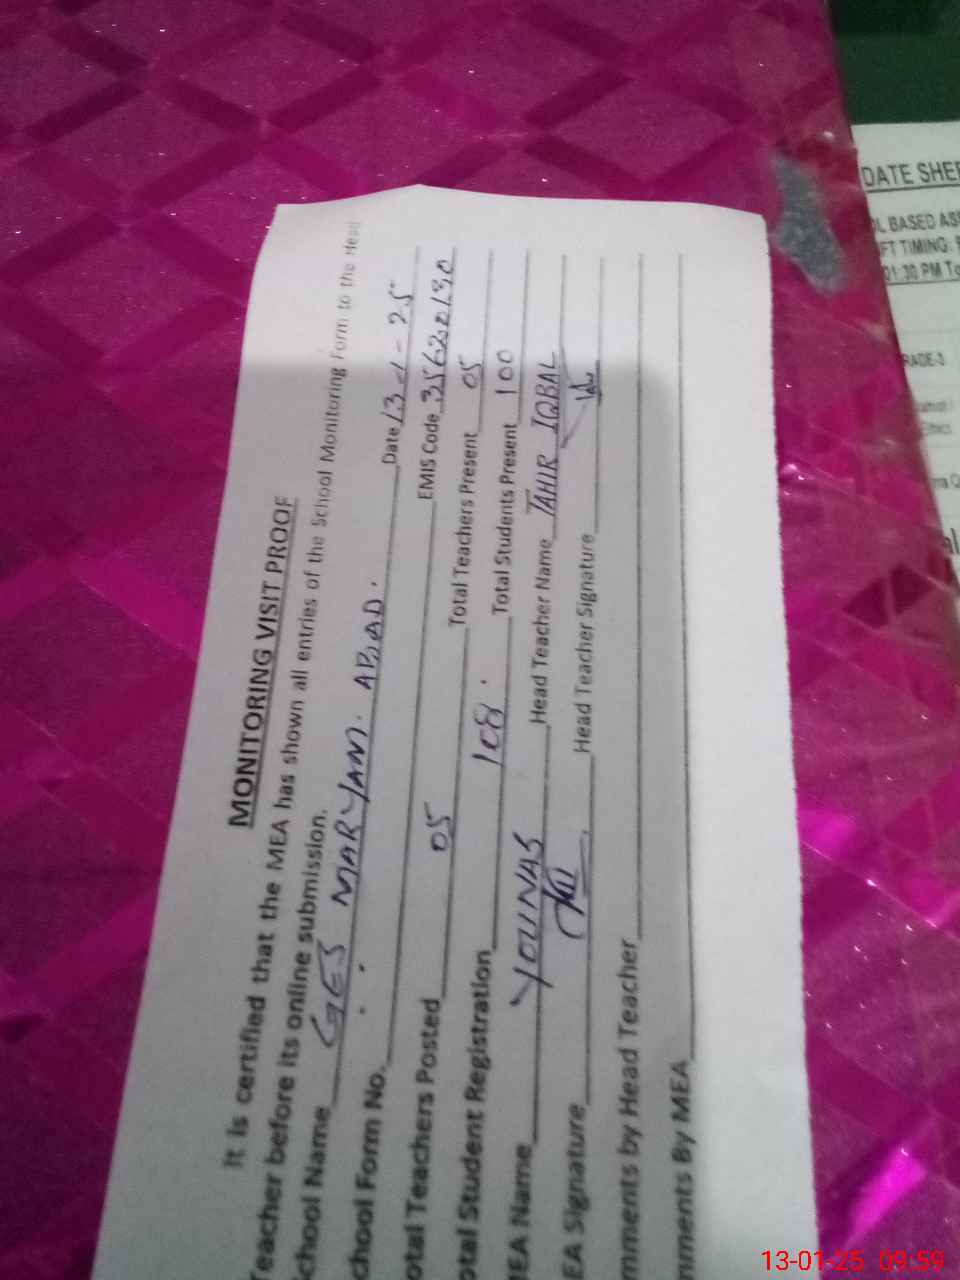 MONITORING VISIT PROOF
It is certified that the MEA has shown all entries of the School Monitoring Form to the Head
Teacher before its online submission.
School Name GES MARYAM. ABAD. Date 13-1-25
chool Form No. EMIS Code 35620130
otal Teachers Posted 05 Total Teachers Present 05
otal Student Registration 108. Total Students Present 100
MEA Name YOUNAS Head Teacher Name TAHIR IQBAL
EA Signature Head Teacher Signature
mments by Head Teacher
mments By MEA
DATE SHEE
L BASED ASS
FT TIMING:
01:30 PM To
RADE-3
13-01-25 09:59